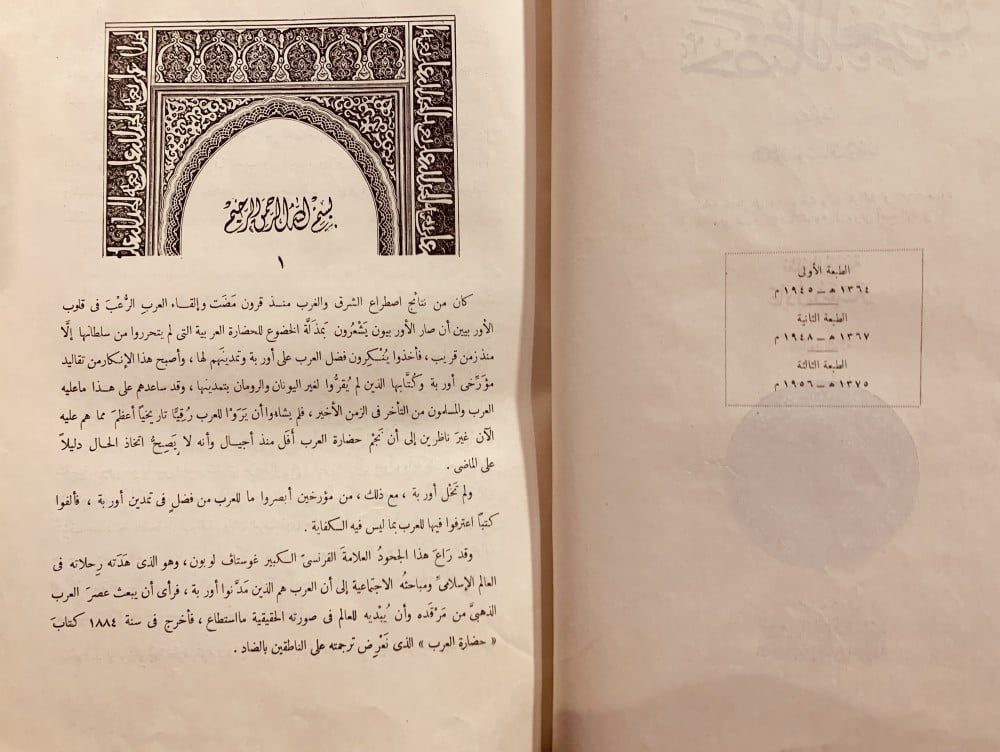 الطبعة الأولى
١٣٦٤ هـ ــ ١٩٤٥ م
الطبعة الثانية
١٣٦٧ هـ ــ ١٩٤٨ م
الطبعة الثالثة
١٣٧٥ هـ ــ ١٩٥٦ م
بسم الله الرحمن الرحيم
١
كان من نتائج اصطراع الشرق والغرب منذ قرون مَضَت وإلقاء العرب الرُّعْبَ فى قلوب
الأوربيين أن صار الأوربيون يَشْعُرون بمَذَلَّة الخضوع للحضارة العربية التى لم يتحرروا من سلطانها إلَّا
منذ زمن قريب ، فأخذوا يُنْكِرون فضل العرب على أوربة وتمدينَهم لها ، وأصبح هذا الإنكار من تقاليد
مؤرِّخى أوربة وكُتَّابها الذين لم يُقرُّوا لغير اليونان والرومان بتمدينها ، وقد ساعدهم على هذا ماعليه
العرب والمسلمون من التأخر فى الزمن الأخير ، فلم يشاءوا أن يَرَوْا للعرب رُقِيًّا تاريخيًّا أعظمَ مما هم عليه
الآن غيرَ ناظرين إلى أن نَجْمَ حضارة العرب أَفَل منذ أجيال وأنه لا يَصِحُّ اتخاذ الحال دليلاً
على الماضى .
ولم تَخْل أوربة ، مع ذلك ، من مؤرخين أبصروا ما للعرب من فضلٍ فى تمدين أوربة ، فألفوا
كتباً اعترفوا فيها للعرب بما ليس فيه الكفاية .
وقد رَاعَ هذا الجحودُ العلامةَ الفرنسىَّ الكبير غوستاف لوبون ، وهو الذى هَدَته رِحلاته فى
العالم الإسلامىِّ ومباحثُه الاجتماعية إلى أن العرب هم الذين مَدَّنوا أوربة ، فرأى أن يبعث عصرَ العرب
الذهبىَّ من مَرْقَده وأن يُبْدِيه للعالم فى صورته الحقيقية مااستطاع ، فأخرج فى سنة ١٨٨٤ كتابَ
« حضارة العرب » الذى نَعْرِض ترجمته على الناطقين بالضاد .